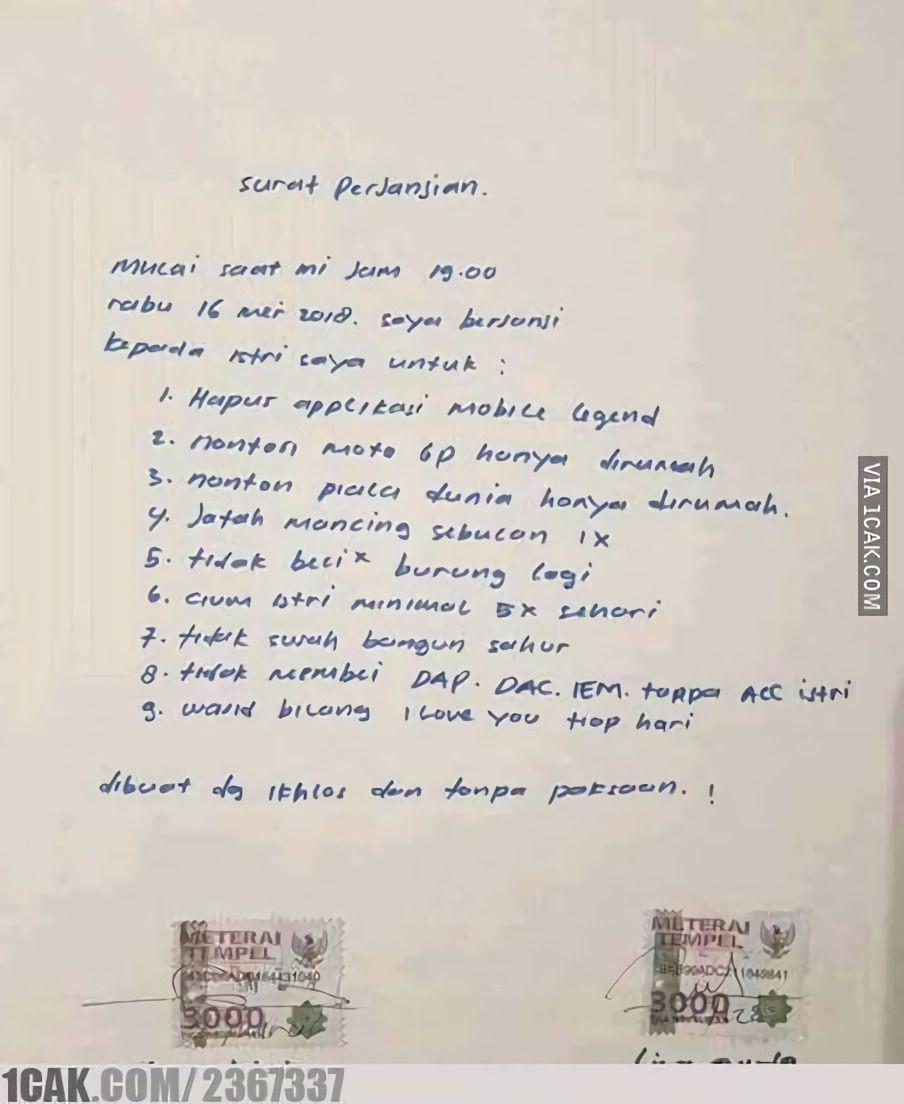 surat perjanjian.
mulai saat ini jam 19.00
rabu 16 mei 2018. saya berjanji
kepada istri saya untuk :
1. Hapus applikasi mobile legend
2. nonton moto Gp hanya dirumah
3. nonton piala dunia hanya dirumah.
4. Jatah mancing sebulan 1x
5. tidak beli x burung lagi
6. cium istri minimal 5x sehari
7. tidak susah bangun sahur
8. tidak membei DAP. DAC. IEM. tanpa ACC istri
9. wajib bilang i love you tiap hari
dibuat dg ikhlas dan tanpa paksaan. !
METERAI
TEMPEL
3000
METERAI
TEMPEL
3000
VIA 1CAK.COM
1CAK.COM/2367337